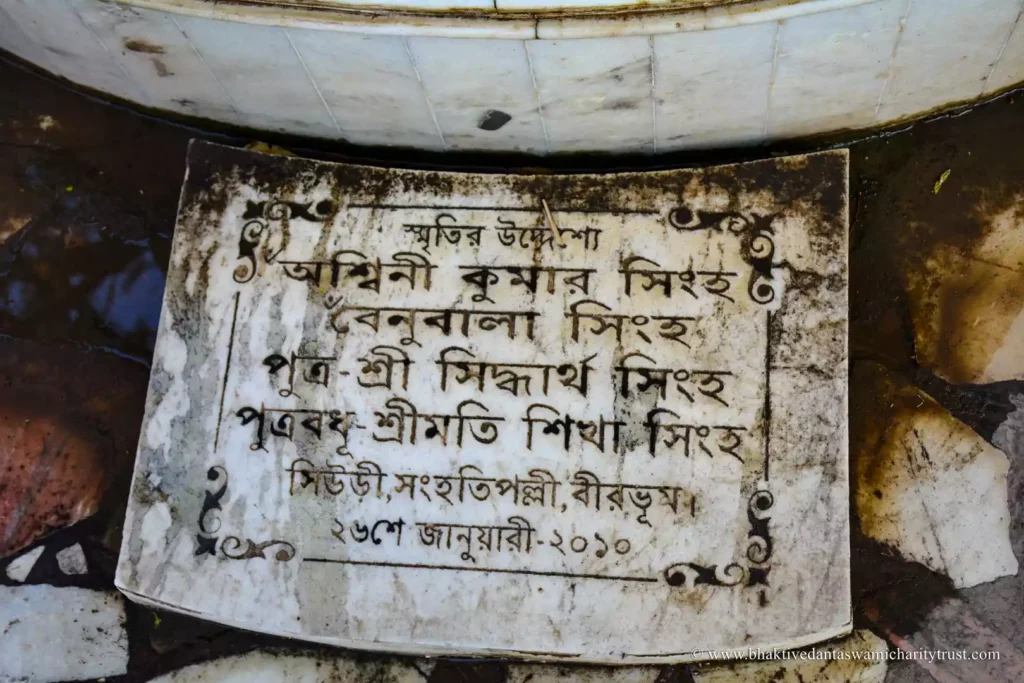 স্মৃতির উদ্দেশ্যে
অশ্বিনী কুমার সিংহ
বেনুবালা সিংহ
পুত্র-শ্রী সিদ্ধার্থ সিংহ
পুত্রবধূ-শ্রীমতি শিখা সিংহ
সিউড়ী,সংহতিপল্লী,বীরভূম।
২৬শে জানুয়ারী-২০১০
© www.bhaktivedantaswamicharitytrust.com